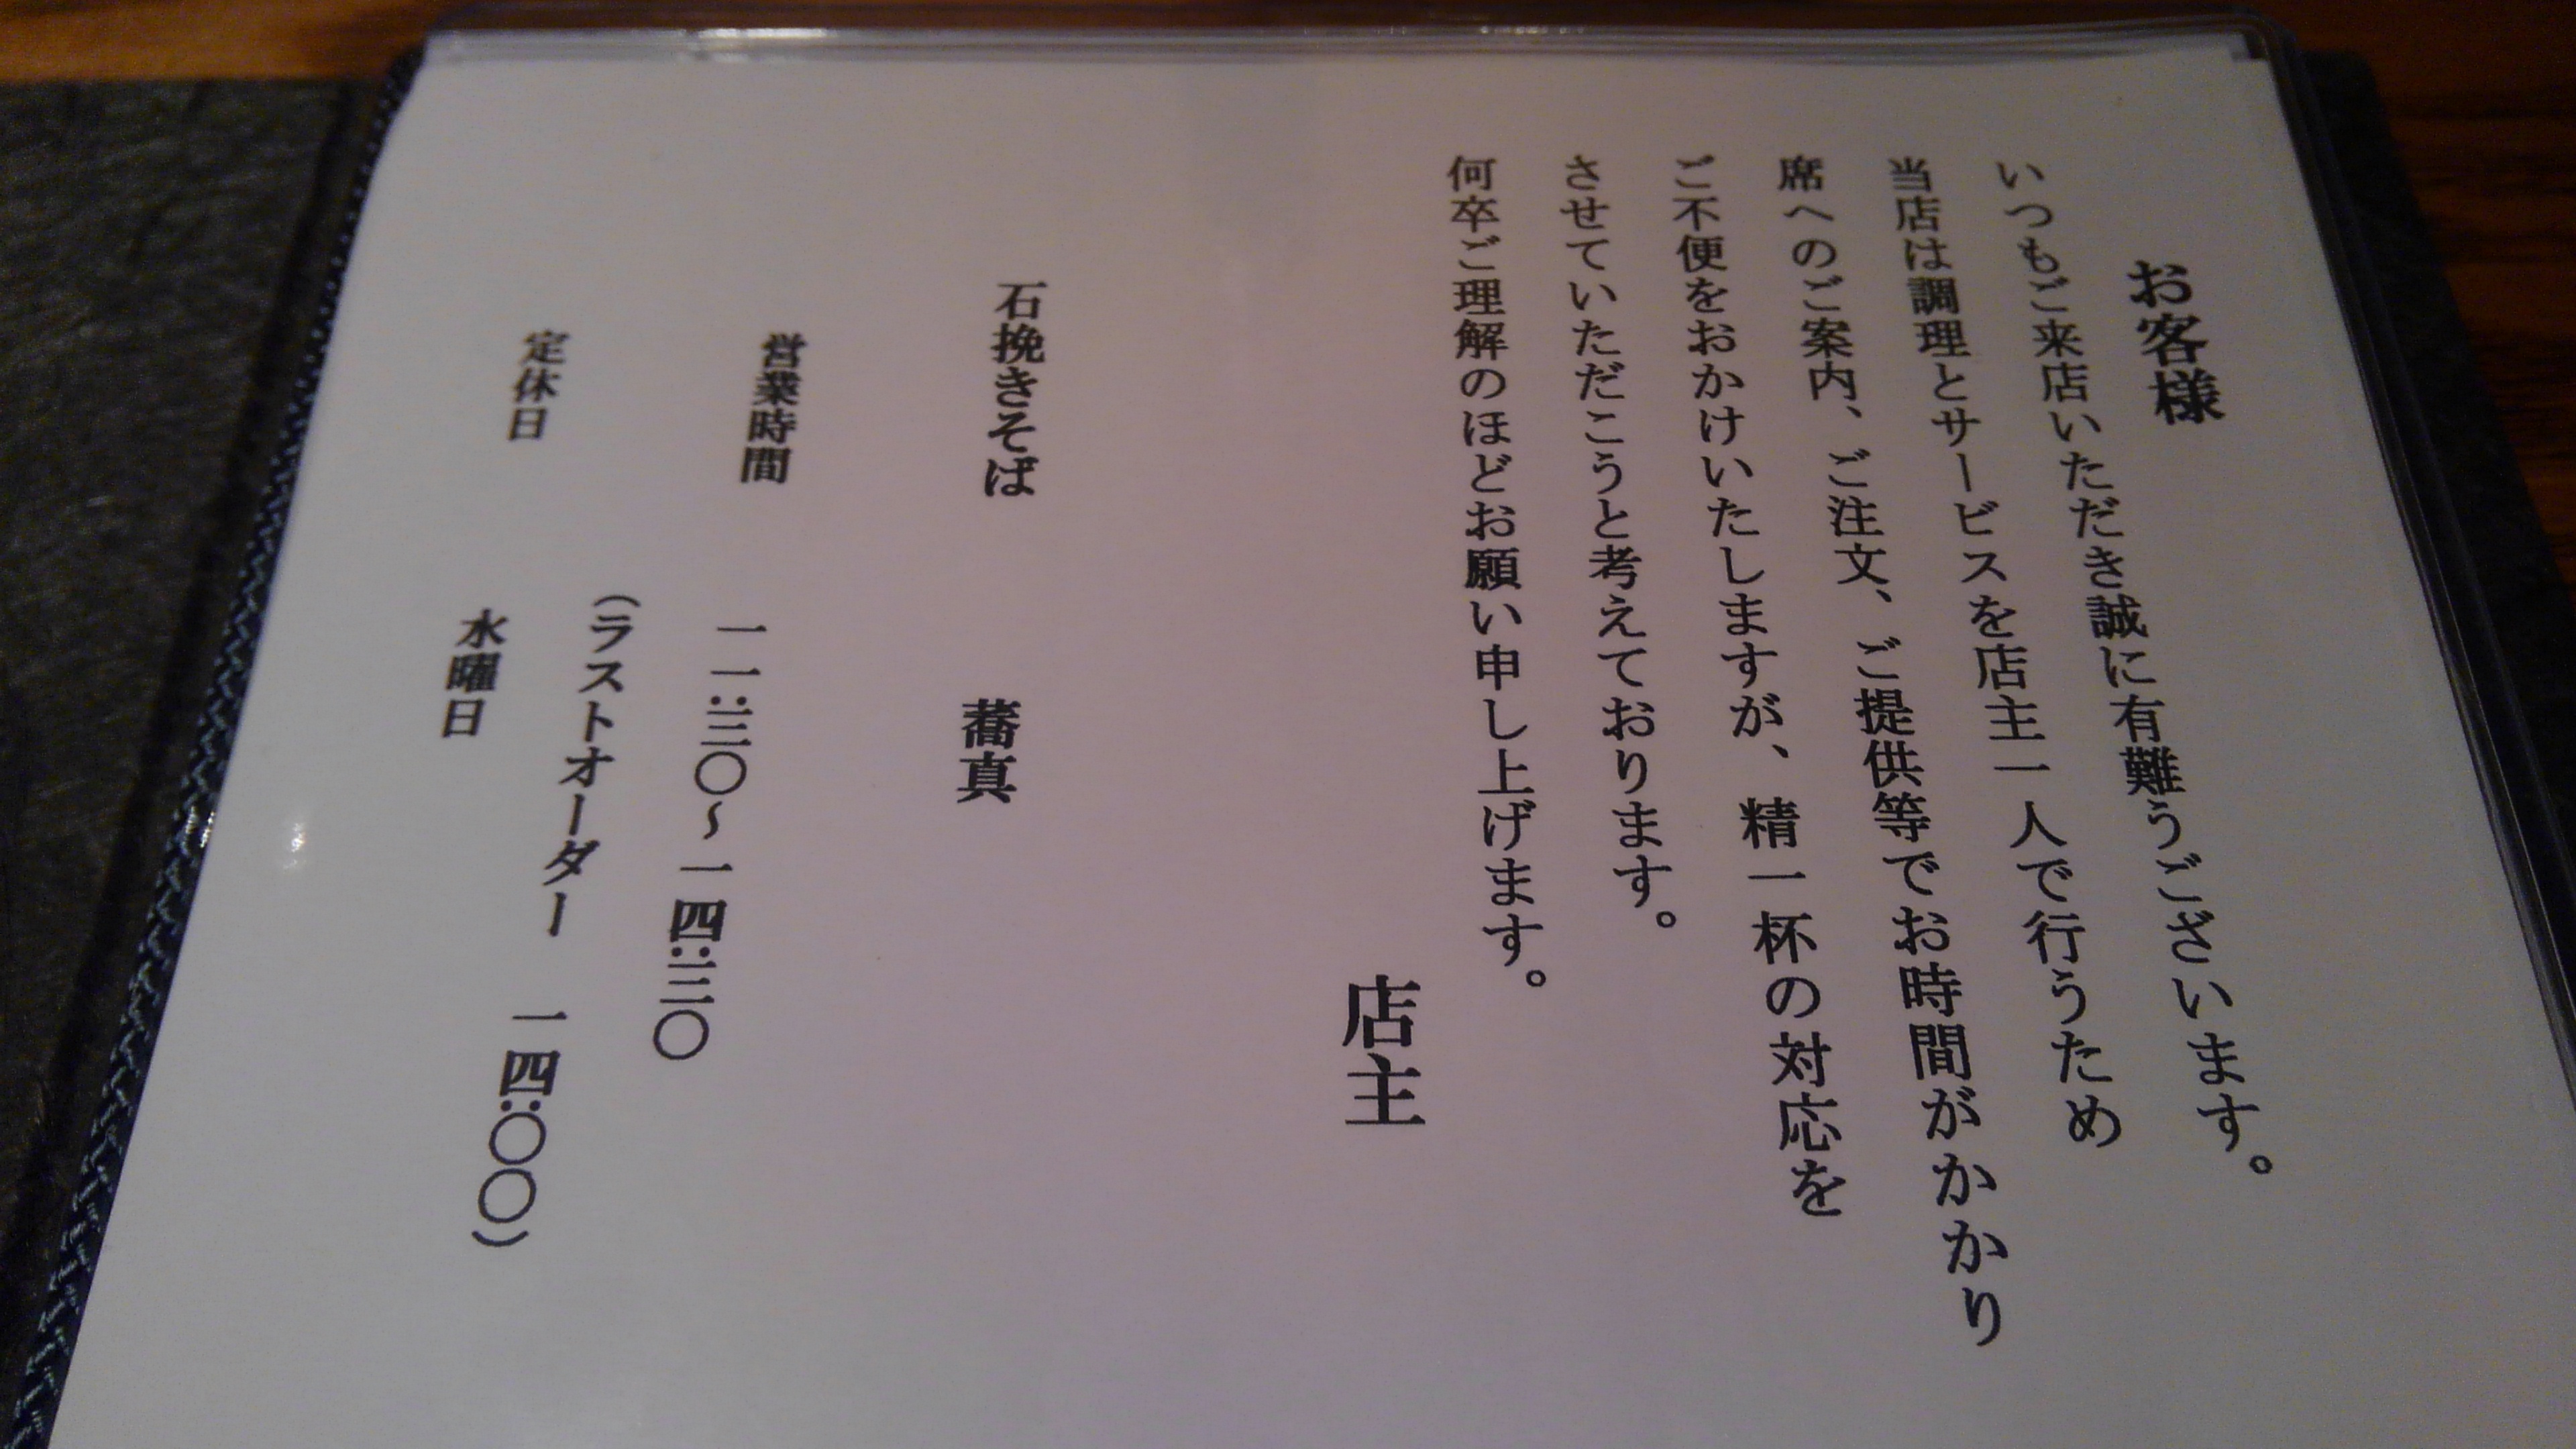 お客様
いつもご来店いただき誠に有難うございます。
当店は調理とサービスを店主一人で行うため
席へのご案内、ご注文、ご提供等でお時間がかかり
ご不便をおかけいたしますが、精一杯の対応を
させていただこうと考えております。
何卒ご理解のほどお願い申し上げます。
店主
石挽きそば　蕎真
営業時間　一一:三〇～一四:三〇
（ラストオーダー　一四:〇〇）
定休日　水曜日